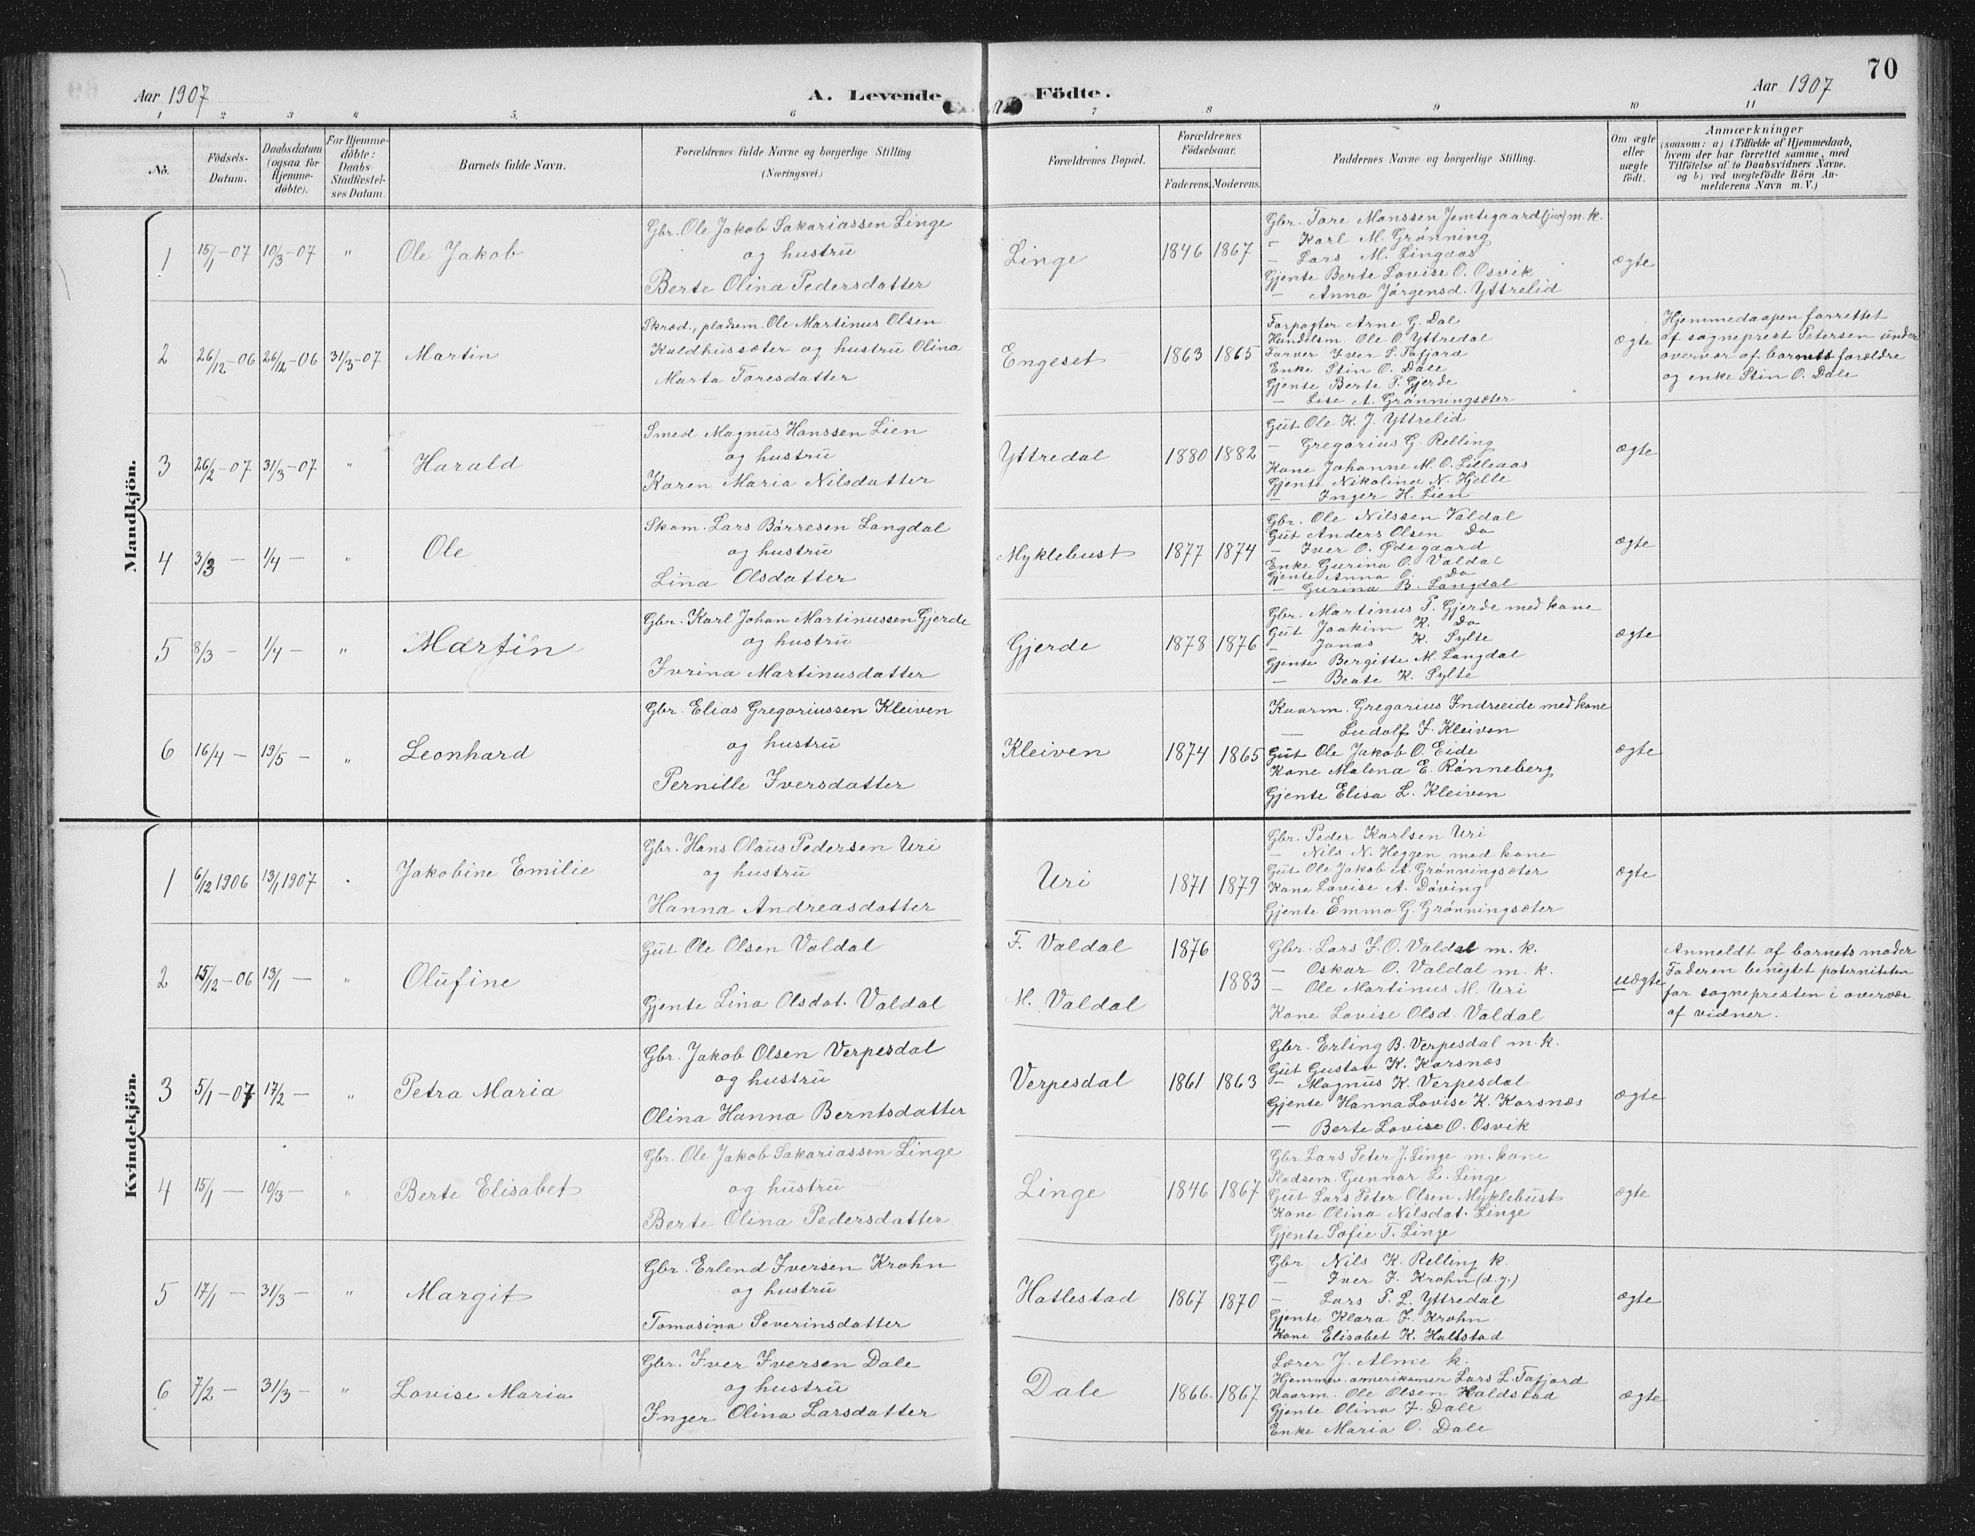 70
Aar 1907
A. Levende Födte.
Aar 1907
1 2 3 4 5. 6 7 8 9 10 11
No.
Födsels-Datum.
Daabsdatum (ogsaa for Hjemme-döbte).
For Hjemme-döbte: Daabs-Stadfæstel-ses Datum.
Barnets fulde Navn.
Forældrenes fulde Navne og borgerlige Stilling (Næringsvei.)
Forældrenes Bopæl.
Forældrenes Födselsaar.
Faderens. Moderens.
Faddernes Navne og borgerlige Stilling.
Om ægte eller uægte födt.
Anmærkninger
(saasom: a) i Tilfælde af Hjemmedaab, hvem der har forrettet samme, med Tilföielse af to Daabsvidners Navne. og b) ved uægtefödte Börn An-melderens Navn m. V.)
Mandkjön.
1 15/1-07 10/3-07 " Ole Jakob
Gbr. Ole Jakob Sakariassen Linge
og hustru
Berte Olina Pedersdatter
Linge 1846 1867
Gbr. Tore Monssen Jemtegaard (jun) m. k.
- Karl M. Grønning
- Lars M. Lingaas
Gjente Berte Lovise O. Osvik
- Anna Jørgensd. Yttrelid
ægte
2 26/12-06 26/12-06 31/3-07 Martin
Skræd., pladsm. Ole Martinus Olsen
Kaldhussæter og hustru Olina
Marta Toresdatter
Engeset 1863 1865
Forpagter Arne G. Dal
Handelsm. Ole O. Yttredal
Farver Iver L. Tafjord
Enke Stin O. Dale
Gjente Berte T. Gjerde
- Lise A. Grønningsæter
ægte
Hjemmedaapen forrettet
af sogneprest Petersen under
overvær af barnets forældre
og enke Stin O. Dale
3 26/2-07 31/3-07 " Harald
Smed Magnus Hanssen Lien
og hustru
Karen Maria Nilsdatter
Yttredal 1880 1882
Gut Ole K. J. Yttrelid
- Gregorius G. Relling
Kone Johanne M. O. Lilleaas
Gjente Nikolina N. Hjelle
- Inger H. Lien
ægte
4 3/3 - 1/4 - " Ole
Skom. Lars Børresen Langdal
og hustru
Lina Olsdatter
Myklebust 1877 1874
Gbr. Ole Nilssen Valdal
Gut Anders Olsen Do
- Iver O. Ødegaard
Enke Gurina O. Valdal
Gjente Anna O. Do
- Gurina B. Langdal
ægte
5 8/3 - 1/4 - " Martin
Gbr. Karl Johan Martinussen Gjerde
og hustru
Ivrina Martinusdatter
Gjerde 1878 1876
Gbr. Martinus P. Gjerde med kone
Gut Joakim K. Do
- Jonas K. Sylte
Gjente Bergitte M. Langdal
- Beate K. Sylte
ægte
6 16/4 - 19/5 - " Leonhard
Gbr. Elias Gregoriussen Kleiven
og hustru
Pernille Iversdatter
Kleiven 1874 1865
Kaarm. Gregorius Indreeide med kone
- Ludolf I. Kleiven
Gut Ole Jakob O. Eide
Kone Malena E. Rønneberg
Gjente Elisa L. Kleiven
ægte
Kvindekjön.
1 6/12 1906 13/1 1907 " Jakobine Emilie
Gbr. Hans Olaus Pedersen Uri
og hustru
Hanna Andreasdatter
Uri 1871 1879
Gbr. Peder Karlsen Uri
- Nils N. Heggen med kone
Gut Ole Jakob A. Grønningsæter
Kone Lovise A. Døving
Gjente Emma G. Grønningsæter
ægte
2 15/12-06 13/1 - " Olufine
Gut Ole Olsen Valdal
Gjente Lina Olsdat. Valdal
F. Valdal 1876
M. Valdal 1883
Gbr. Lars I. O. Valdal m. k.
- Oskar O. Valdal m. k.
- Ole Martinus M. Uri
Kone Lovise Olsd. Valdal
uægte
Anmeldt af barnets moder
Faderen benegtet paterniteten
for sognepresten i overvær
af vidner.
3 5/1-07 17/2 - " Petra Maria
Gbr. Jakob Olsen Verpesdal
og hustru
Olina Hanna Berntsdatter
Verpesdal 1861 1863
Gbr. Erling B. Verpesdal m. k.
Gut Gustav K. Korsnæs
- Magnus K. Verpesdal
Gjente Hanna Lovise K. Korsnæs
- Berte Lovise O. Osvik
ægte
4 15/1 - 10/3 - " Berte Elisabet
Gbr. Ole Jakob Sakariassen Linge
og hustru
Berte Olina Pedersdatter
Linge 1846 1867
Gbr. Lars Peter J. Linge m. kone
Pladsem. Gunnar L. Linge
Gut Lars Peter Olsen Myklebust
Kone Olina Nilsdat. Linge
Gjente Sofie T. Linge
ægte
5 17/1 - 31/3 - " Margit
Gbr. Erlend Iversen Krohn
og hustru
Tomasina Severinsdatter
Hatlestad 1867 1870
Gbr Nils K. Relling k.
- Iver I. Krohn (d.y.)
- Lars P. L. Yttredal
Gjente Klara I. Krohn
Kone Elisabet K. Haltstad
ægte
6 7/2 - 31/3 - " Lovise Maria
Gbr. Iver Iversen Dale
og hustru
Inger Olina Larsdatter
Dale 1866. 1867
Lærer J. Alme k.
Hjemmv. amerikaner Lars L. Tafjord
Kaarm. Ole Olsen Haldstad
Gjente Olina I. Dale
Enke Maria O. Dale
ægte